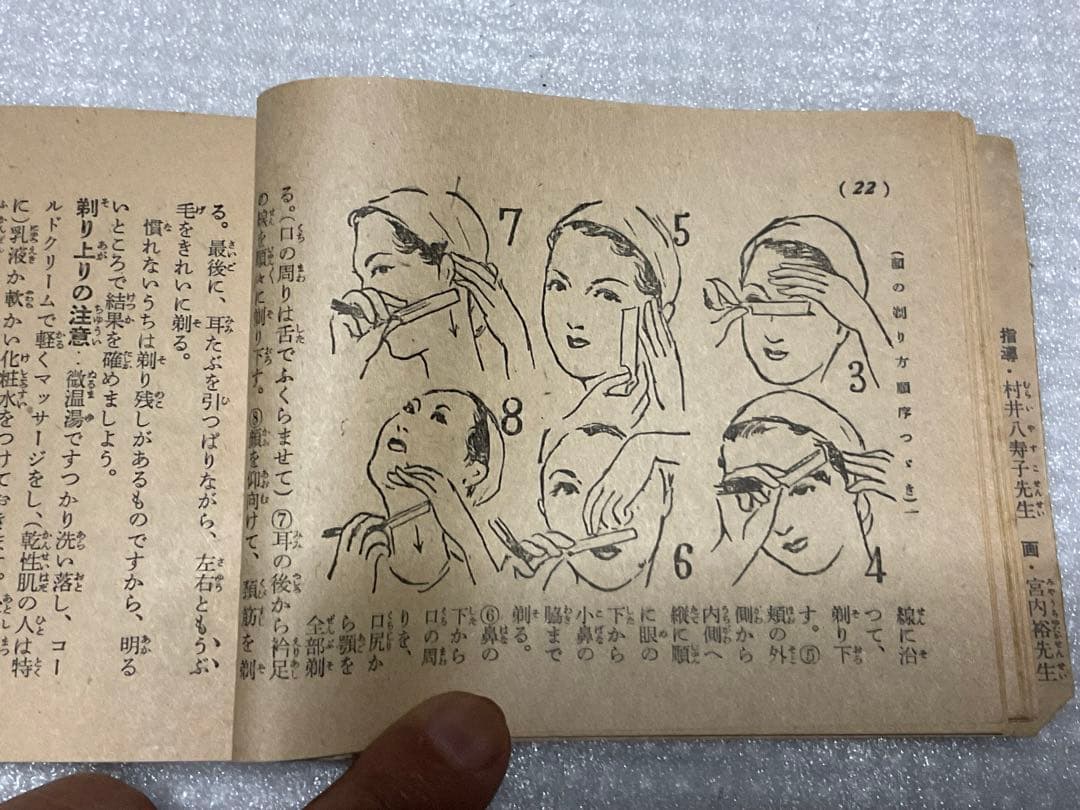 指導・村井八寿子先生 画・宮内裕先生
(22)
(顔の剃り方順序つゞき)
3
4
5
6
7
8
線に沿
つて、
剃り下
す。⑤
頬の外
側から
内側へ
縦に順
に眼の
下から
小鼻の
脇まで
剃る。
⑥鼻の
下から
口の周
りを、
口尻か
ら顎を
全部剃
る。(口の周りは舌でふくらませて)⑦耳の後から衿足
の線を順々に剃り下す。⑧顔を仰向けて、頚筋を剃
る。最後に、耳たぶを引つぱりながら、左右ともうぶ
毛をきれいに剃る。
慣れないうちは剃り残しがあるものですから、明る
いところで結果を確めましよう。
剃り上りの注意‥微温湯ですつかり洗い落し、コー
ルドクリームで軽くマッサージをし、(乾性肌の人は特
に)乳液か軟かい化粧水をつけておきます。